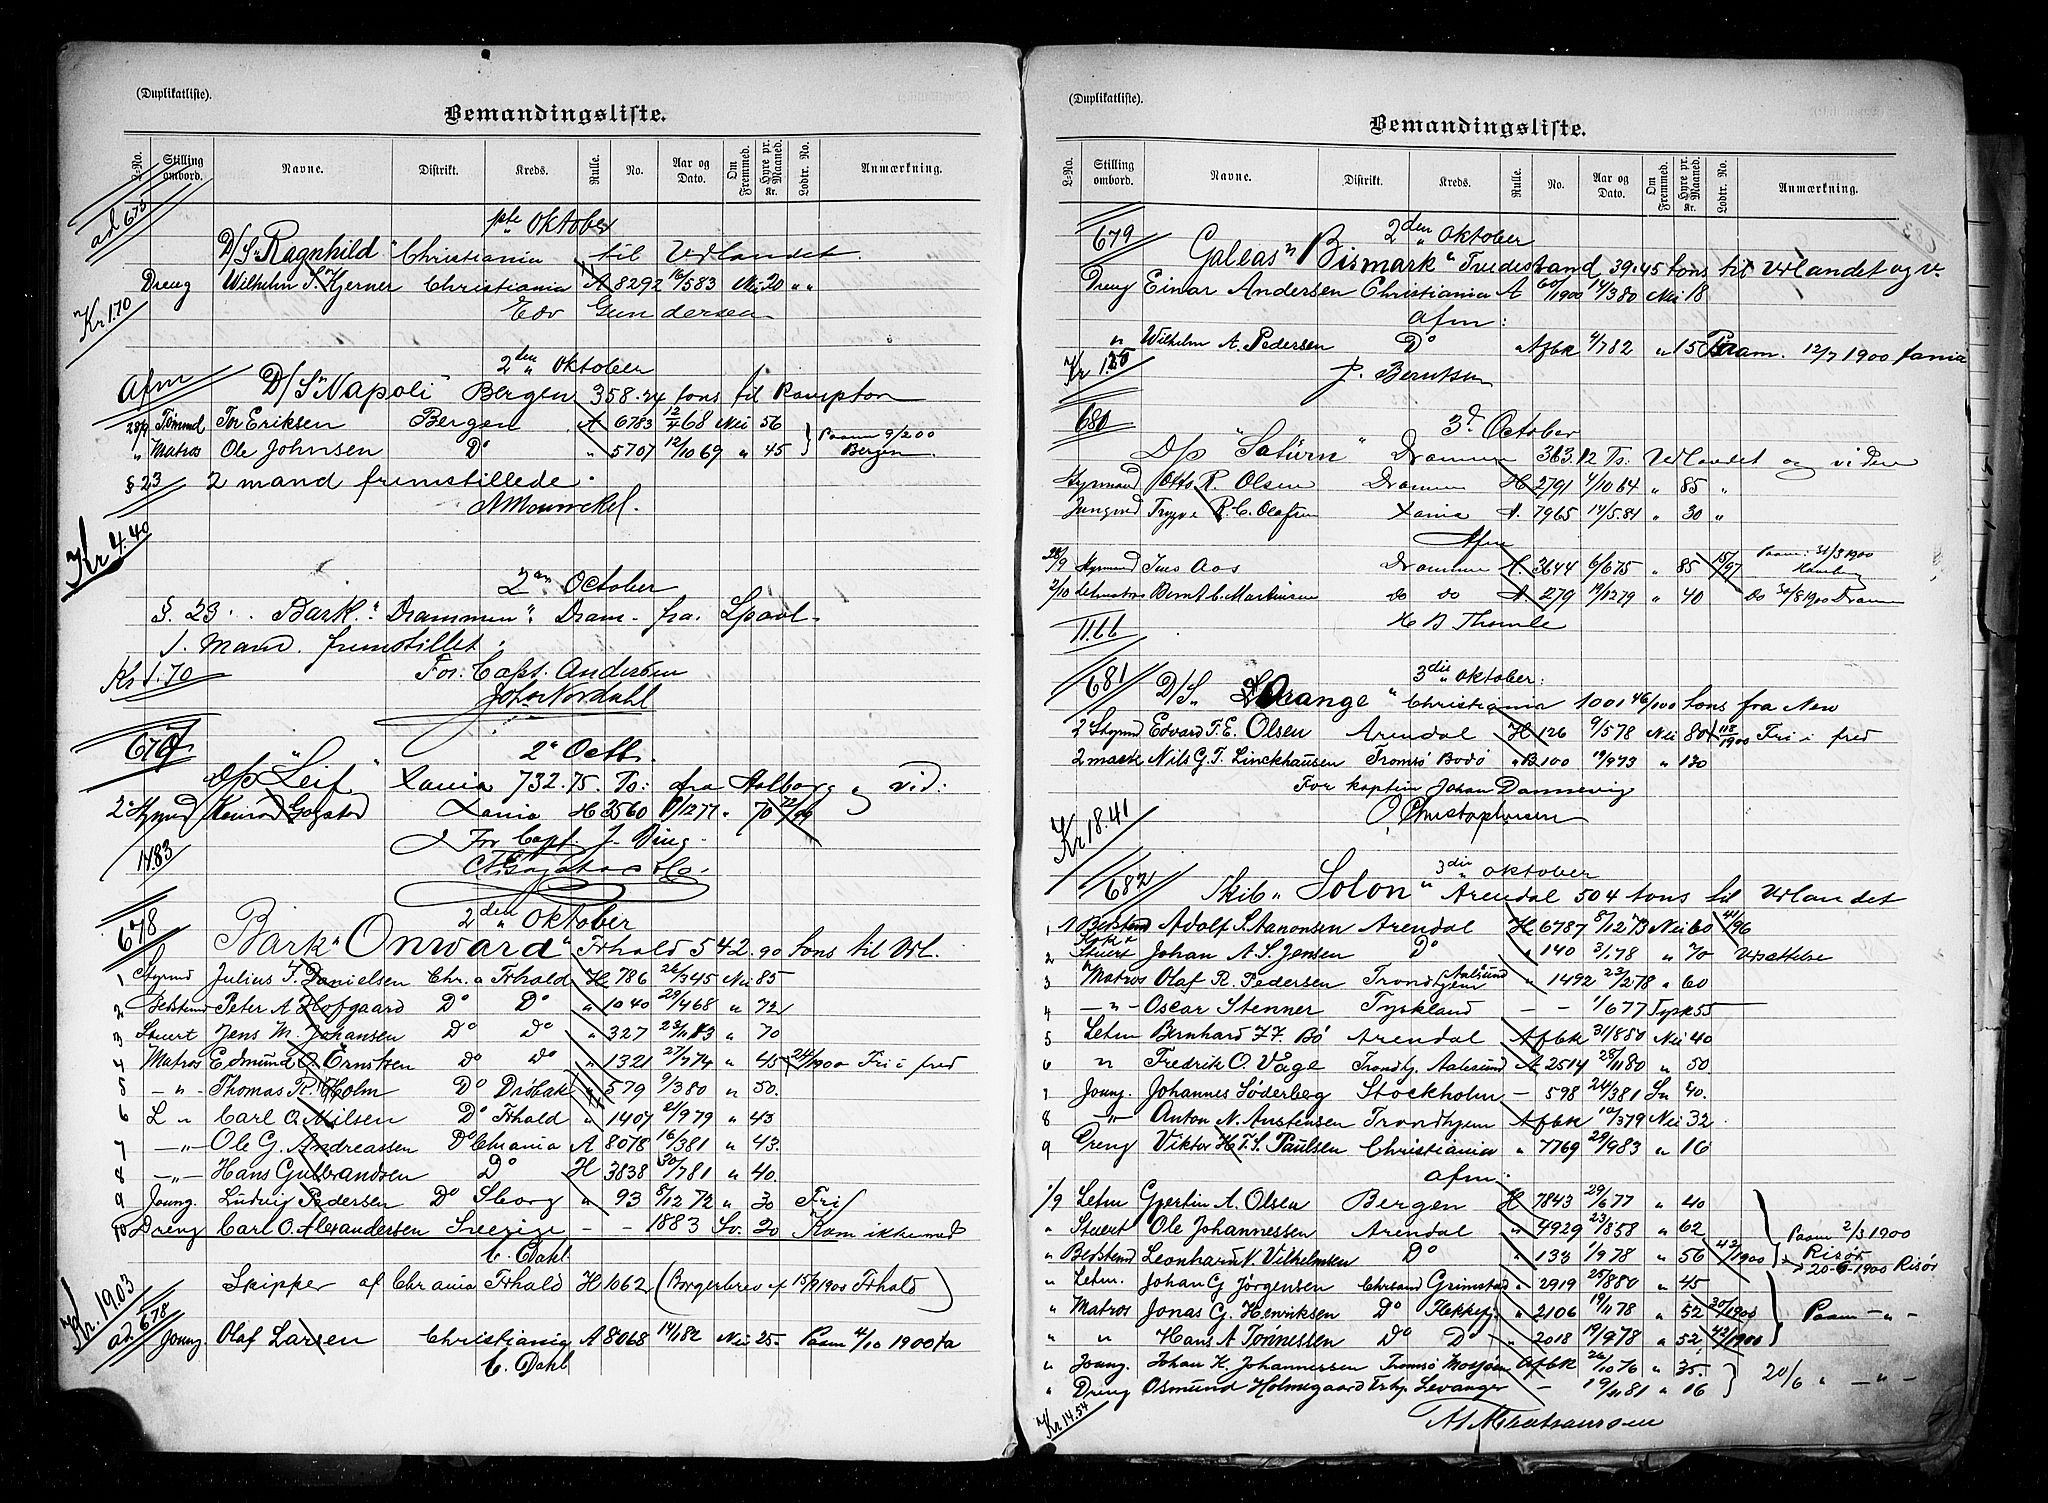 (Duplikatliste).
Bemandingsliste.
L-No. Stilling ombord. Navne. Distrikt. Kreds. Rulle. No. Aar og Dato. Om Fremmed. Hyre pr. Maaned. Kr. Lodtr. No. Anmærkning.
ad 675 1ste Oktober
D/S "Ragnhild" Christiania til Udlandet.
Dreng Wilhelm S. Hjerner Christiania A 8292 16/5 83 Nei 20 " "
Kr 1.70 Edv Gundersen
2den Oktober
Afm D/S "Napoli" Bergen 358.24 tons til
28/9 Tømmd Tor Eriksen Bergen A 6783 12/4 68 Nei 56
" Matros Ole Johnsen Do " 5707 12/10 69 " 45 Paam 9/2 00 Bergen
§ 23 2 mand fremstillede.
Kr 4.40
2den October
§. 23. Bark. "Drammen" Dram. fra
1. Mand fremstillet.
Kr 1.70 For Capt. Andersen
Joh. Nordahl
2 Octb.
D/S "Leif" Xania 732.75. To: fra Aalborg og vid:
2 Styrmd Konrad Gogstad Xania H 3560 12 77 " 70
1483 For Capt. J.
678 2den Oktober
Bark "Onward" Frhald 542.90 tons til Udl.
1 Styrmd Julius F. Danielsen Chr.a Frhald H 786 26/3 45 Nei 85
2 Bedstemd Peter A Hofgaard Do Do " 1040 29/4 68 " 72
3 Stuert Jens M. Johansen Do Do " 327 " 70
4 Matros Edmund O. Örnitzen Do Do " 1321 27/7 74 " 45 24/1900 Fri i fred
5 -"- Thomas R. Holm Do Drøbak " 579 9/3 80 " 50.
6 L " Carl O. Nilsen Do Frhald " 1407 21/9 79 " 43
7 -"- Ole G. Andreassen Do Chrania A 8078 16/3 81 " 43.
8 -"- Hans Gulbrandsen Do H 3838 30/7 81 " 40.
9 Joung. Ludvig Pedersen Do Sborg " 93 8/12 72 " 30 Fri
10 Dreng Carl O. Alexandersen Sverige - - 1883 Sv. 20 Kom ikke med
C. Dahl
Kr. 19.03 Skipper af Chrania Frhald H 1062 (Borgerbrev af 15/9 1900 Frhald)
ad. 678 Joung. Olaf Larsen Christiania A 8068 14/1 82 Nei 25- Paam 4/10 1900 Xa
C. Dahl
(Duplikatliste).
Bemandingsliste.
L-No. Stilling ombord. Navne. Distrikt. Kreds. Rulle. No. Aar og Dato. Om Fremmed. Hyre pr. Maaned. Kr. Lodtr. No. Anmærkning.
679 2den Oktober
Galeas "Bismark" Tvedestrand 39.45 tons til Udlandet og v.
Dreng Einar Andersen Christiania A 60/1900 14/3 80 Nei 18
Afm:
" Wilhelm A. Pedersen Do Afbk 4/7 82 " 15 Paam. 12/7 1900 Xania
Kr 1.25 J. Berntsen
680 3d. October
D/S "Saturn" Drammen 363.12 Ts. Udlandet og videre
Styrmand Otto R. Olsen Drammen H 2791 1/10 64 " 85 "
Jungmd Trygve R. C. Olafsen Xania A. 7965 14/5.81 " 30 "
Afm
28/9 Styrmand Jens Aas Drammen H. 3644 6/6 75 " 85 15/97 Paam: 31/3 1900
2/10 Letmatros Bernt C. Martinsen do do A. 279 19/12 79 " 40 do 30/8 1900 Dramn
11.66
681 3die Oktober:
D/S. "Orange" Christiania 1001 46/100 tons fra New
2 Styrmd Edvard T. E. Olsen Arendal H 126 9/5 78 Nei 80 118/1900 Fri i fred
2 mask Nils G. T. Linckhausen Tromsø Bodø "B 100 19/9 73 " 130
For kaptein Johan Dannevig
Kr 18.41 O. Christophersen
682 3die Oktober
Skib "Solon" Arendal 504 tons til Udlandet
1 Bedstemd Adolf S. Aanonsen Arendal H 6787 8/12 73 Nei 60 41/96
2 Kok & Stuert Johan A. S. Jensen Do " 140 3/1 78 " 70 Udsættelse
3 Matros Olaf R. Pedersen Trondhjem Aalesund " 1492 23/2 78 " 60
4 -"- Oscar Stenner Tyskland - - 1/6 77 Tysk 55
5 Letm Bernhard F. F. Bö Arendal Afbk 31/8 80 Nei 40
6 " Fredrik O. Våge Trondhj. Aalesund A 2514 28/11 80 " 50.
7 Joung. Johannes Söderberg Stockholm - 598 24/3 81 Sv 40.
8 -"- Anton N. Austensen Trondhjem Afbk 10/3 79 Nei 32
9 Dreng Viktor H. F. S. Paulsen Christiania " 7769 29/9 83 " 16
Afm.
1/9 Letm Gjertin A. Olsen Bergen H 7843 29/6 77 " 40
" Stuert Ole Johannessen Arendal " 4929 23/8 58 " 62 Paam 2/3 1900
" Bedstemd Leonhard N. Vilhelmsen Do " 133 1/9 78 " 56 42/1900 Risør 20-6-1900 Risør
" Letm. Johan G Jørgensen Chrsand Grimstad " 2919 25/8 80 " 45
" Matros Jonas G. Henriksen Do Flekkefj. " 2106 19/11 78 " 52 30/1900 Paam -"-
" " Hans A Tönnessen Do Do " 2018 19/9 78 " 52 42/1900
" Joung. Johan H. Johannessen Tromsø Mosjøen Afbk 26/10 76 " 35. 20/6 " -"-
" Dreng Osmund Holmegaard Trhj. Levanger - 19/11 81 " 16
Kr 14.54